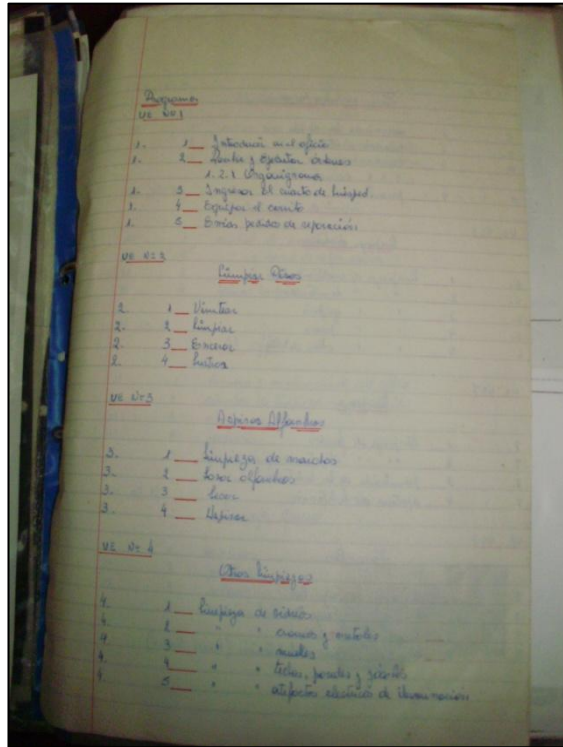 Programa
UE Nº 1
1. 1_ Introducir en el oficio
1. 2_ Recibir y Ejecutar órdenes
1. 2. 1 Organigrama
1. 3_ Ingresar el cuarto de huésped.
1. 4_ Equipar el carrito
1. 5_ Enviar pedidos de reparación
UE Nº 2
Limpiar Pisos
2. 1_
2. 2_ Limpiar
2. 3_ Encerar
2. 4_ Lustrar
UE Nº 3
Aspirar Alfombras
3. 1_ Limpieza de manchas
3. 2_ Lavar alfombras
3. 3_ Secar
3. 4_ Aspirar
UE Nº 4
Otras Limpiezas
4. 1_ Limpieza de vidrios
4. 2_ " " cromos y metales
4. 3_ " " muebles
4. 4_ " " techos, paredes y zócalos
4. 5_ " " artefactos eléctricos de iluminación